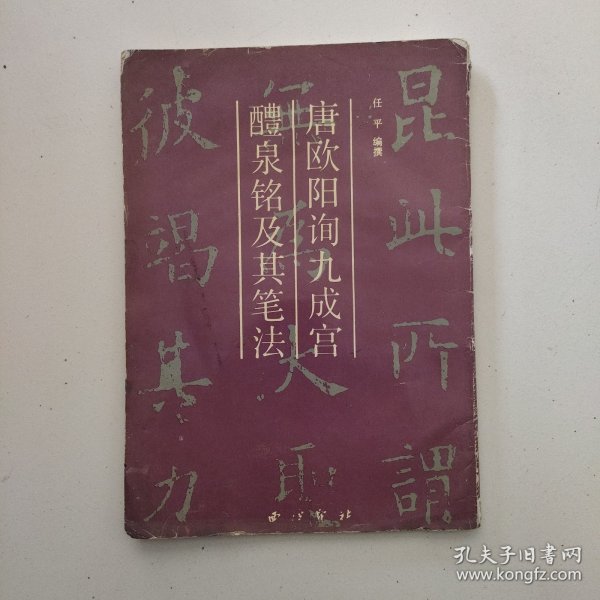 昆此所謂
大
彼竭其力
任平 编撰
唐欧阳询九成宫
醴泉铭及其笔法
西泠印社
孔夫子旧书网
www.kongfz.com